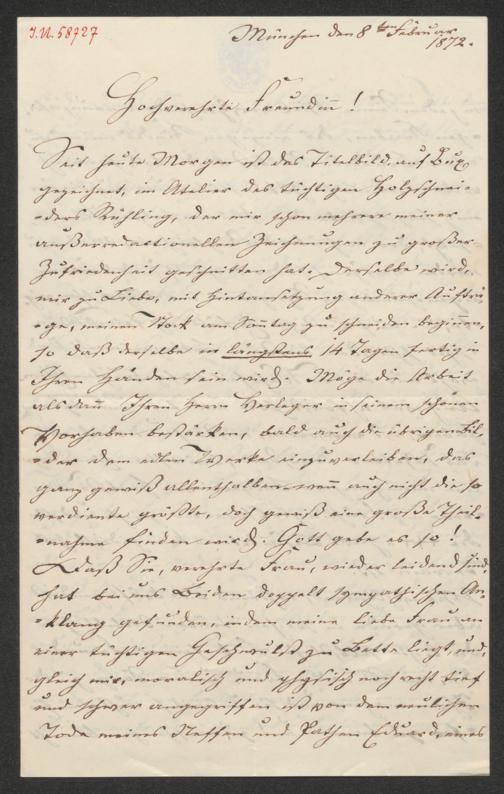 J.N. 58727
München den 8ten Februar
1872.
Hochverehrte Freundin!
Seit heute Morgen ist das Titelbild auf Bux
gezeichnet, im Atelier des tüchtigen Holzschnei-
-ders Rühling, der mir schon mehrere meiner
außerredactionellen Zeichnungen zu großer
Zufriedenheit geschnitten hat. Derselbe wird,
mir zu Liebe, mit Hintansetzung anderer Aufträ-
-ge, meinen Stock am Sonntag zu schneiden beginnen,
so daß derselbe in längstens 14 Tagen fertig in
Ihren Händen sein wird. Möge die Arbeit
alsdann Ihren Herrn Verleger in seinem schönen
Vorhaben bestärken, bald auch die übrigen Bil-
-der dem edlen Werke einzuverleiben, das
ganz gewiß allenthalben wenn auch nicht die so
verdiente größte, doch gewiß eine große Theil-
-nahme finden wird. Gott gebe es so!
Daß Sie, verehrte Frau, wieder leidend sind,
hat bei uns Beiden doppelt sympathischen An-
-klang gefunden, indem meine liebe Frau an
einer tüchtigen Geschwulst zu Bette liegt, und,
gleich mir, moralisch und physisch noch recht tief
und schwer angegriffen ist von dem neulichen
Tode meines Neffen und Pathen Eduard, eines